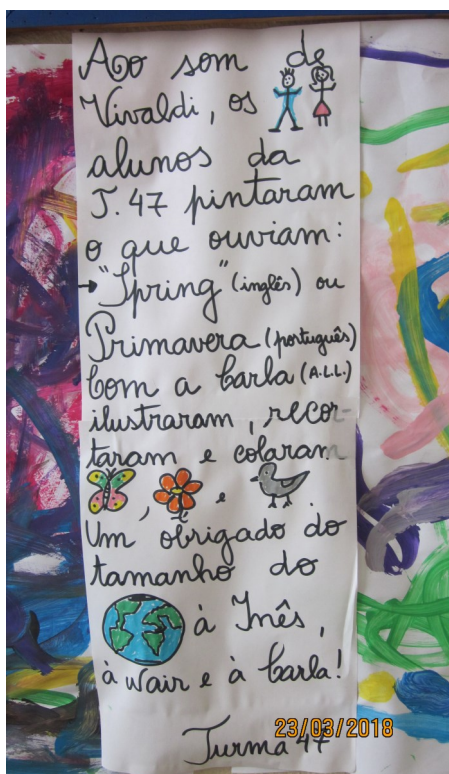 Ao som de
Vivaldi, os
alunos da
T. 47 pintaram
o que ouviam:
→ "Spring" (inglês) ou
Primavera (português)
Com a Carla (A.L.L.)
ilustraram, recor-
taram e colaram
, e .
Um obrigado do
tamanho do
à Inês,
à Nair e à Carla!
Turma 47
23/03/2018